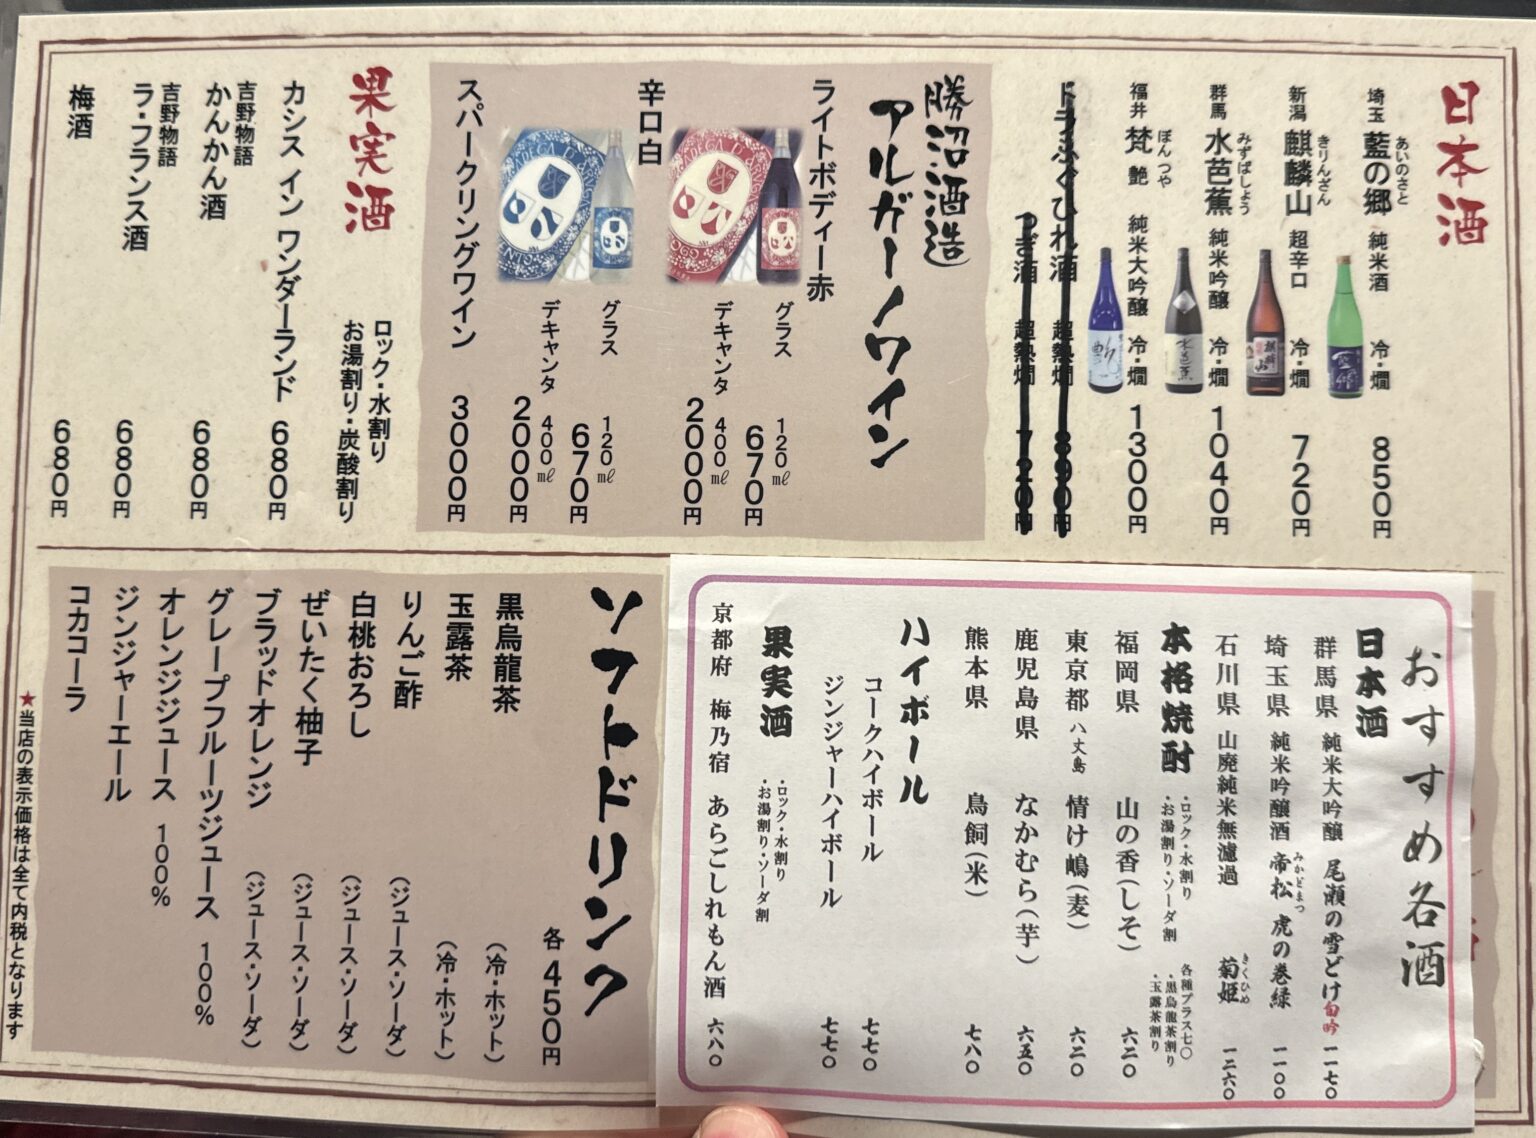 日本酒
埼玉 藍の郷 純米酒 冷・燗 850円
あいのさと
新潟 麒麟山 超辛口 冷・燗 720円
きりんざん
群馬 水芭蕉 純米吟醸 冷・燗 1040円
みずばしょう
福井 梵 艶 純米大吟醸 冷・燗 1300円
ぼん つや
トラふぐひれ酒 超熱燗 890円
つぎ酒 超熱燗 720円
勝沼酒造
アルガーノワイン
ライトボディー赤
グラス 120㎖ 670円
デキャンタ 400㎖ 2000円
辛口白
グラス 120㎖ 670円
デキャンタ 400㎖ 2000円
スパークリングワイン 3000円
果実酒
ロック・水割り
お湯割り・炭酸割り
カシス イン ワンダーランド 680円
吉野物語
かんかん酒 680円
吉野物語
ラ・フランス酒 680円
梅酒 680円
おすすめ各酒
日本酒
群馬県 純米大吟醸 尾瀬の雪どけ旬吟 一一七〇
埼玉県 純米吟醸酒 帝松 虎の巻緑 一一〇〇
みかどまつ
石川県 山廃純米無濾過 菊姫 一二六〇
きくひめ
本格焼酎
・ロック・水割り
・お湯割り・ソーダ割
各種プラス七〇
・黒烏龍茶割り
・玉露茶割り
福岡県 山の香(しそ) 六二〇
東京都 八丈島 情け嶋(麦) 六二〇
鹿児島県 なかむら(芋) 六五〇
熊本県 鳥飼(米) 七八〇
ハイボール
コークハイボール 七七〇
ジンジャーハイボール 七七〇
果実酒
・ロック・水割り
・お湯割り・ソーダ割
京都府 梅乃宿 あらごしれもん酒 六八〇
ソフトドリンク
各450円
黒烏龍茶 (冷・ホット)
玉露茶 (冷・ホット)
りんご酢 (ジュース・ソーダ)
白桃おろし (ジュース・ソーダ)
ぜいたく柚子 (ジュース・ソーダ)
ブラッドオレンジ (ジュース・ソーダ)
グレープフルーツジュース 100%
オレンジジュース 100%
ジンジャーエール
コカコーラ
★当店の表示価格は全て内税となります